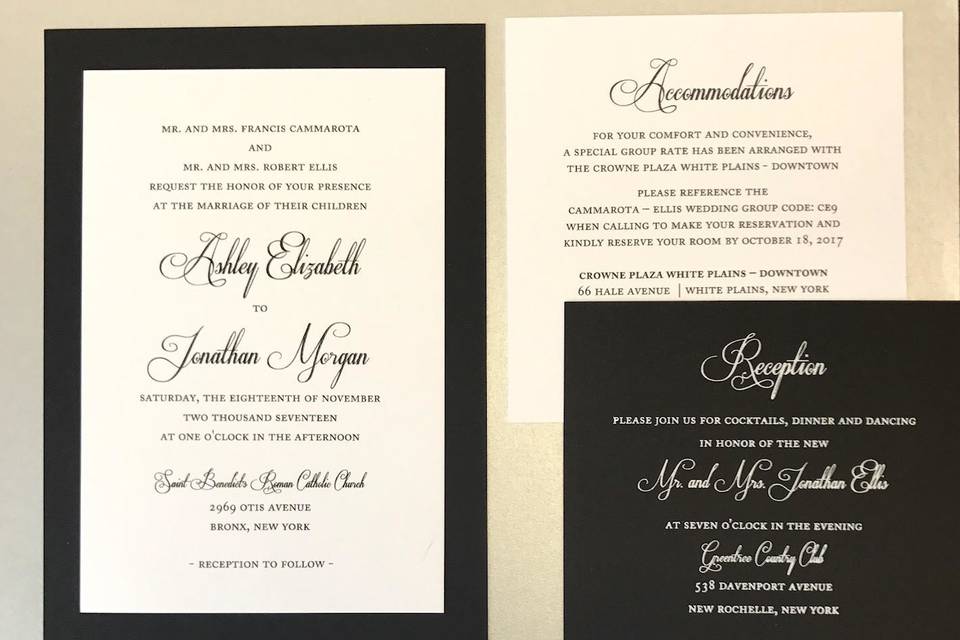 MR. AND MRS. FRANCIS CAMMAROTA
AND
MR. AND MRS. ROBERT ELLIS
REQUEST THE HONOR OF YOUR PRESENCE
AT THE MARRIAGE OF THEIR CHILDREN
Ashley Elizabeth
TO
Jonathan Morgan
SATURDAY, THE EIGHTEENTH OF NOVEMBER
TWO THOUSAND SEVENTEEN
AT ONE O'CLOCK IN THE AFTERNOON
Saint Benedict's Roman Catholic Church
2969 OTIS AVENUE
BRONX, NEW YORK
- RECEPTION TO FOLLOW -
Accommodations
FOR YOUR COMFORT AND CONVENIENCE,
A SPECIAL GROUP RATE HAS BEEN ARRANGED WITH
THE CROWNE PLAZA WHITE PLAINS - DOWNTOWN
PLEASE REFERENCE THE
CAMMAROTA – ELLIS WEDDING GROUP CODE: CE9
WHEN CALLING TO MAKE YOUR RESERVATION AND
KINDLY RESERVE YOUR ROOM BY OCTOBER 18, 2017
CROWNE PLAZA WHITE PLAINS – DOWNTOWN
66 HALE AVENUE | WHITE PLAINS, NEW YORK
Reception
PLEASE JOIN US FOR COCKTAILS, DINNER AND DANCING
IN HONOR OF THE NEW
Mr. and Mrs. Jonathan Ellis
AT SEVEN O'CLOCK IN THE EVENING
Greentree Country Club
538 DAVENPORT AVENUE
NEW ROCHELLE, NEW YORK